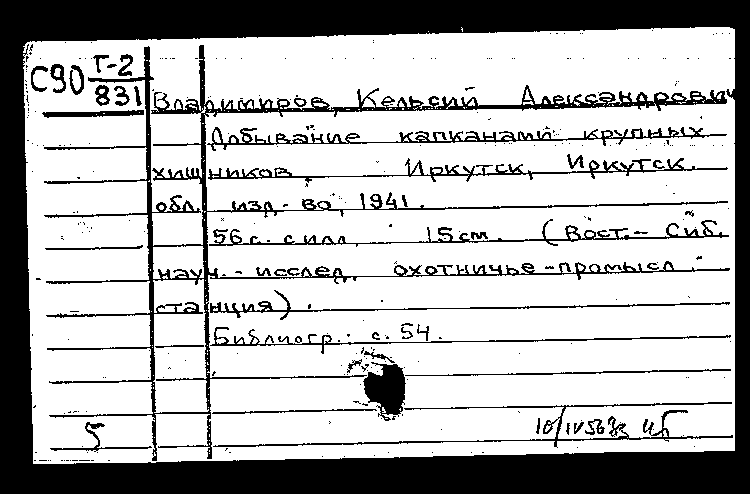 С90 Г-2
831
Владимиров, Кельсий Александрович
Добывание капканами крупных
хищников. Иркутск, Иркутск.
обл. изд-во, 1941.
56 с. с илл. 15 см. (Вост.-Сиб.
науч.-исслед. охотничье-промысл.
станция).
Библиогр.: с. 54.
5